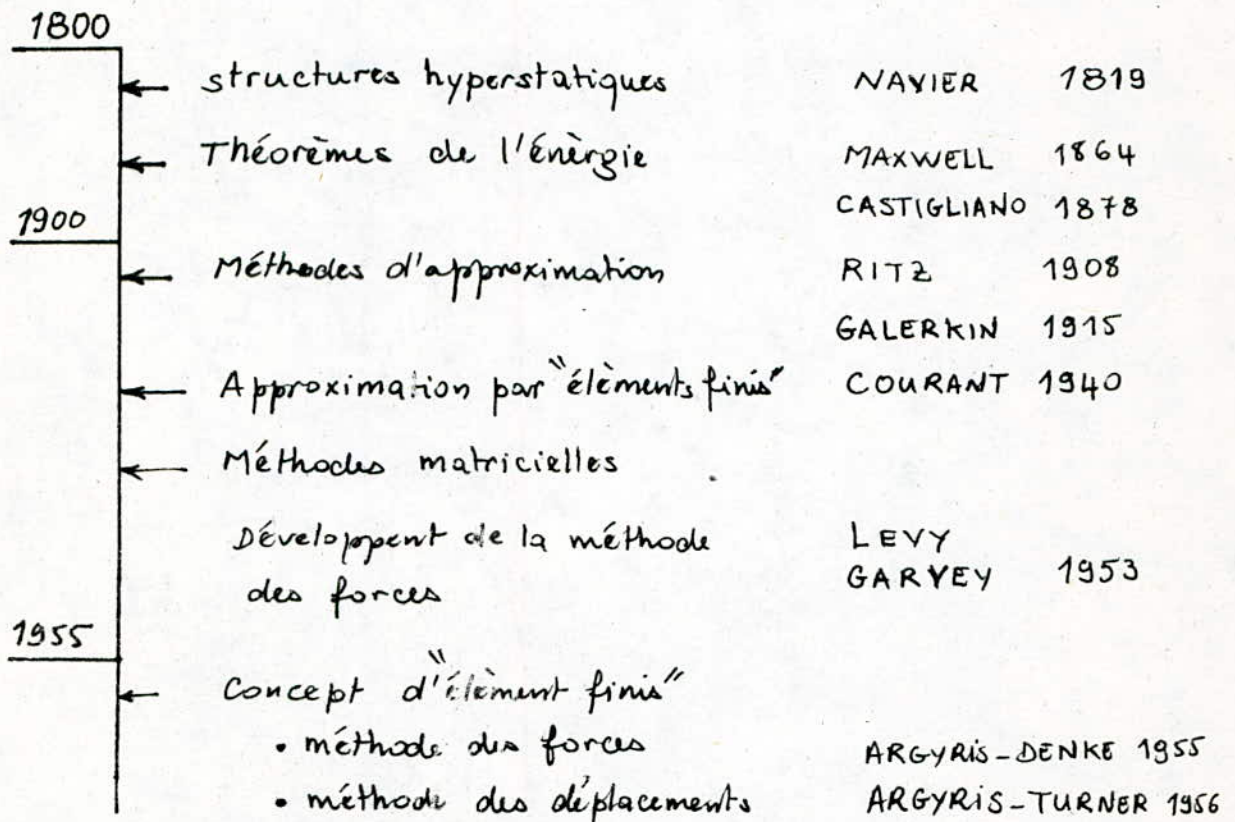 1800
structures hyperstatiques NAVIER 1819
Théorèmes de l'énèrgie MAXWELL 1864
CASTIGLIANO 1878
1900
Méthodes d'approximation RITZ 1908
GALERKIN 1915
Approximation par "élèments finis" COURANT 1940
Méthodes matricielles
Développent de la méthode LEVY
des forces GARVEY 1953
1955
Concept d'"élèment finis"
• méthode des forces ARGYRIS-DENKE 1955
• méthode des déplacements ARGYRIS-TURNER 1956